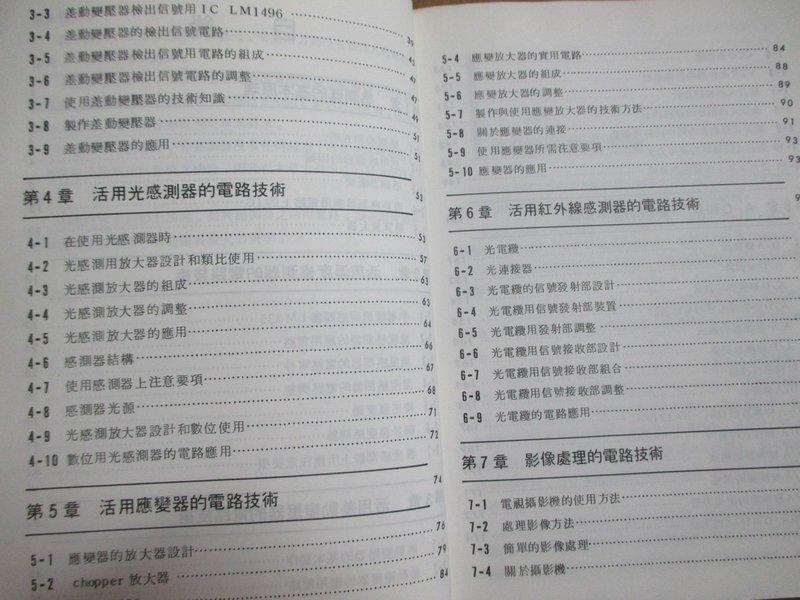 3-3 差動變壓器檢出信號用 IC LM1496 39
3-4 差動變壓器的檢出信號電路 45
3-5 差動變壓器檢出信號用電路的組成 47
3-6 差動變壓器檢出信號電路的調整 47
3-7 使用差動變壓器的技術知識 49
3-8 製作差動變壓器 51
3-9 差動變壓器的應用 51
第4章 活用光感測器的電路技術 53
4-1 在使用光感測器時 53
4-2 光感測用放大器設計和類比使用 57
4-3 光感測放大器的組成 63
4-4 光感測放大器的調整 63
4-5 光感測放大器的應用 64
4-6 感測器結構 66
4-7 使用感測器上注意要項 67
4-8 感測器光源 68
4-9 光感測放大器設計和數位使用 71
4-10 數位用光感測器的電路應用 72
第5章 活用應變器的電路技術 74
5-1 應變器的放大器設計 76
5-2 chopper 放大器 79
84
5-4 應變放大器的實用電路 84
5-5 應變放大器的組成 88
5-6 應變放大器的調整 89
5-7 製作與使用應變放大器的技術方法 90
5-8 關於應變器的連接 91
5-9 使用應變器所需注意要項 93
5-10 應變器的應用 93
第6章 活用紅外線感測器的電路技術
6-1 光電纜
6-2 光連接器
6-3 光電纜的信號發射部設計
6-4 光電纜用信號發射部裝置
6-5 光電纜用發射部調整
6-6 光電纜用信號接收部設計
6-7 光電纜用信號接收部組合
6-8 光電纜用信號接收部調整
6-9 光電纜的電路應用
第7章 影像處理的電路技術
7-1 電視攝影機的使用方法
7-2 處理影像方法
7-3 簡單的影像處理
7-4 關於攝影機